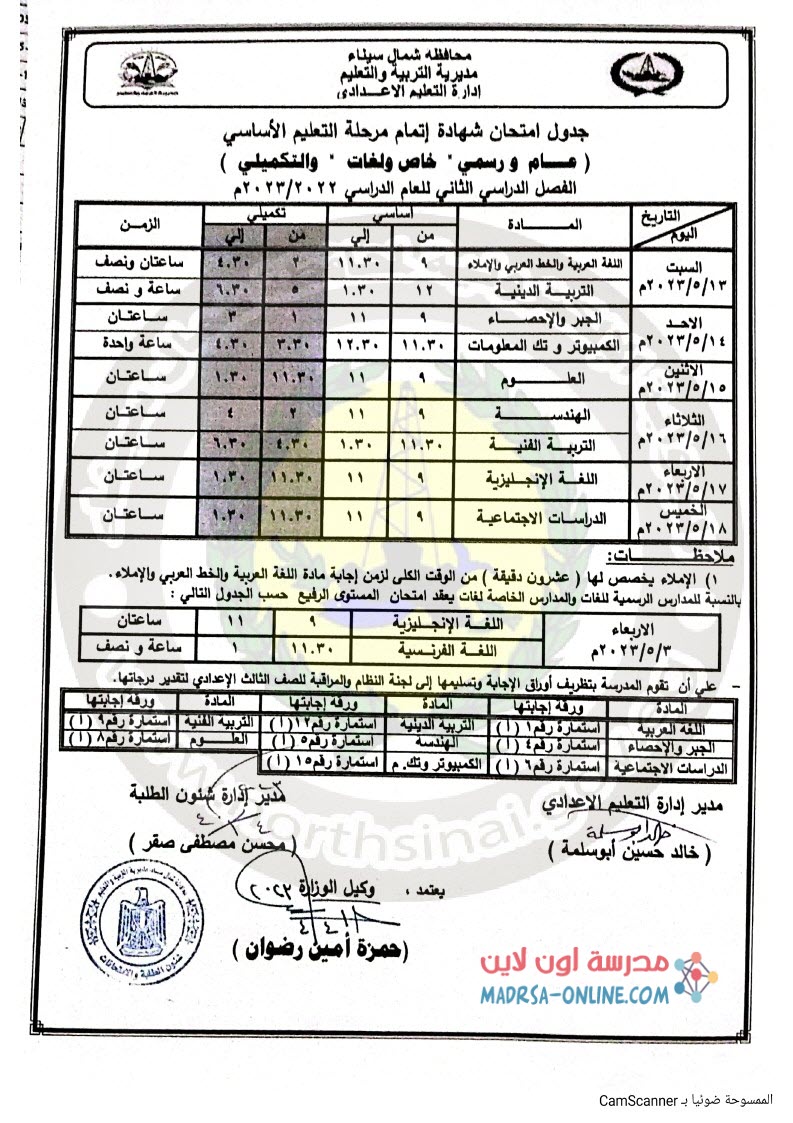 محافظه شمال سيناء
مديرية التربية والتعليم
إدارة التعليم الاعدادى
جدول امتحان شهادة إتمام مرحلة التعليم الأساسي
( عـــام و رسمي" خاص ولغات " والتكميلي )
الفصل الدراسي الثاني للعام الدراسي ٢٠٢٣/٢٠٢٢م
التاريخ اليوم المــــادة أساسي تكميلي الزمن
من إلي من إلي
السبت ٢٠٢٣/٥/١٣م اللغة العربية والخط العربي والإملاء ٩ ١١.٣٠ ٢ ٤.٣٠ ساعتان ونصف
التربيـة الدينية ١٢ ١.٣٠ ٥ ٦.٣٠ ساعة و نصف
الاحد ٢٠٢٣/٥/١٤م الجبر والإحصـاء ٩ ١١ ١ ٣ ســاعتـان
الكمبيوتر و تك المعلومات ١١.٣٠ ١٢.٣٠ ٣.٣٠ ٤.٣٠ ساعة واحدة
الاثنين ٢٠٢٣/٥/١٥م العلـــوم ٩ ١١ ١١.٣٠ ١.٣٠ ســاعتـان
الثلاثاء ٢٠٢٣/٥/١٦م الهندســـة ٩ ١١ ٢ ٤ ســاعتـان
التربية الفنية ١١.٣٠ ١.٣٠ ٤.٣٠ ٦.٣٠ ســاعتـان
الاربعاء ٢٠٢٣/٥/١٧م اللغة الإنجليزية ٩ ١١ ١١.٣٠ ١.٣٠ ســاعتـان
الخميس ٢٠٢٣/٥/١٨م الدراسات الاجتماعية ٩ ١١ ١١.٣٠ ١.٣٠ ســاعتـان
ملاحظـــــات:
١) الإملاء يخصص لها ( عشرون دقيقة ) من الوقت الكلى لزمن إجابة مادة اللغة العربية والخط العربي والإملاء .
بالنسبة للمدارس الرسمية للغات والمدارس الخاصة لغات يعقد امتحان المستوى الرفيع حسب الجدول التالي :
الاربعاء ٢٠٢٣/٥/٣م اللغة الإنجليزية ٩ ١١ ساعتان
اللغة الفرنسية ١١.٣٠ ١ ساعة و نصف
- علي أن تقوم المدرسة بتظريف أوراق الإجابة وتسليمها إلى لجنة النظام والمراقبة للصف الثالث الإعدادي لتقدير درجاتها.
المادة ورقة إجابتها المادة ورقه إجابتها المادة ورقة إجابتها
اللغه العربيه استمارة رقم١ (أ) التربيه الدينيه استمارة رقم١٢ (أ) التربية الفنية استمارة رقم٩ (أ)
الجبر والإحصاء استمارة رقم٤ (أ) الهندسه استمارة رقم٥ (أ) العلـوم استمارة رقم٨ (أ)
الدراسات الاجتماعية استمارة رقم٦ (أ) الكمبيوتر وتك. م استمارة رقم١٥ (أ)
مدير إدارة التعليم الاعدادي
مدير إدارة شئون الطلبة
( خالد حسين أبوسلمة )
( محسن مصطفى صقر )
يعتمد ، وكيل الوزارة ٢٠٢٣
(حمزة أمين رضوان )
شئون الطلبة والامتحانات
مدرسة اون لاين
MADRSA-ONLINE.COM
الممسوحة ضوئيا بـ CamScanner